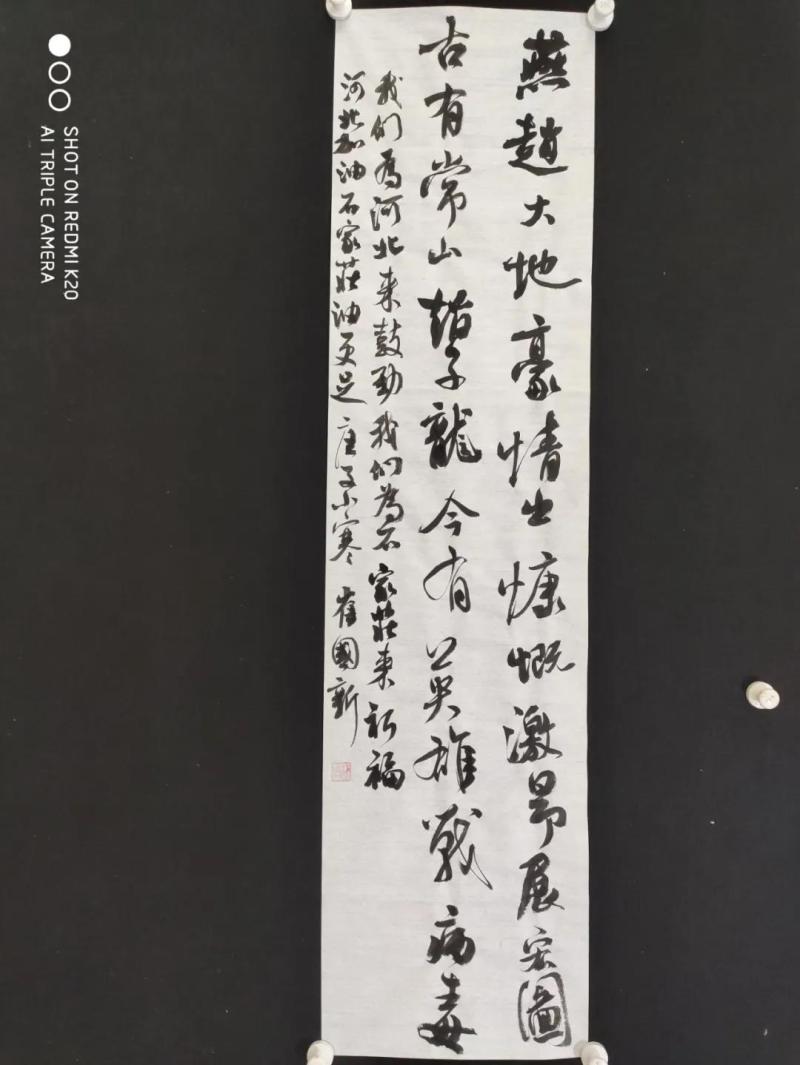 燕趙大地豪情出慷慨激昂展宏圖
古有常山趙子龍今有英雄戰病毒
我们為河北来鼓勁我们為石家莊来祈福
河北加油石家莊油更足庚子小寒崔國新
SHOT ON REDMI K20
AI TRIPLE CAMERA